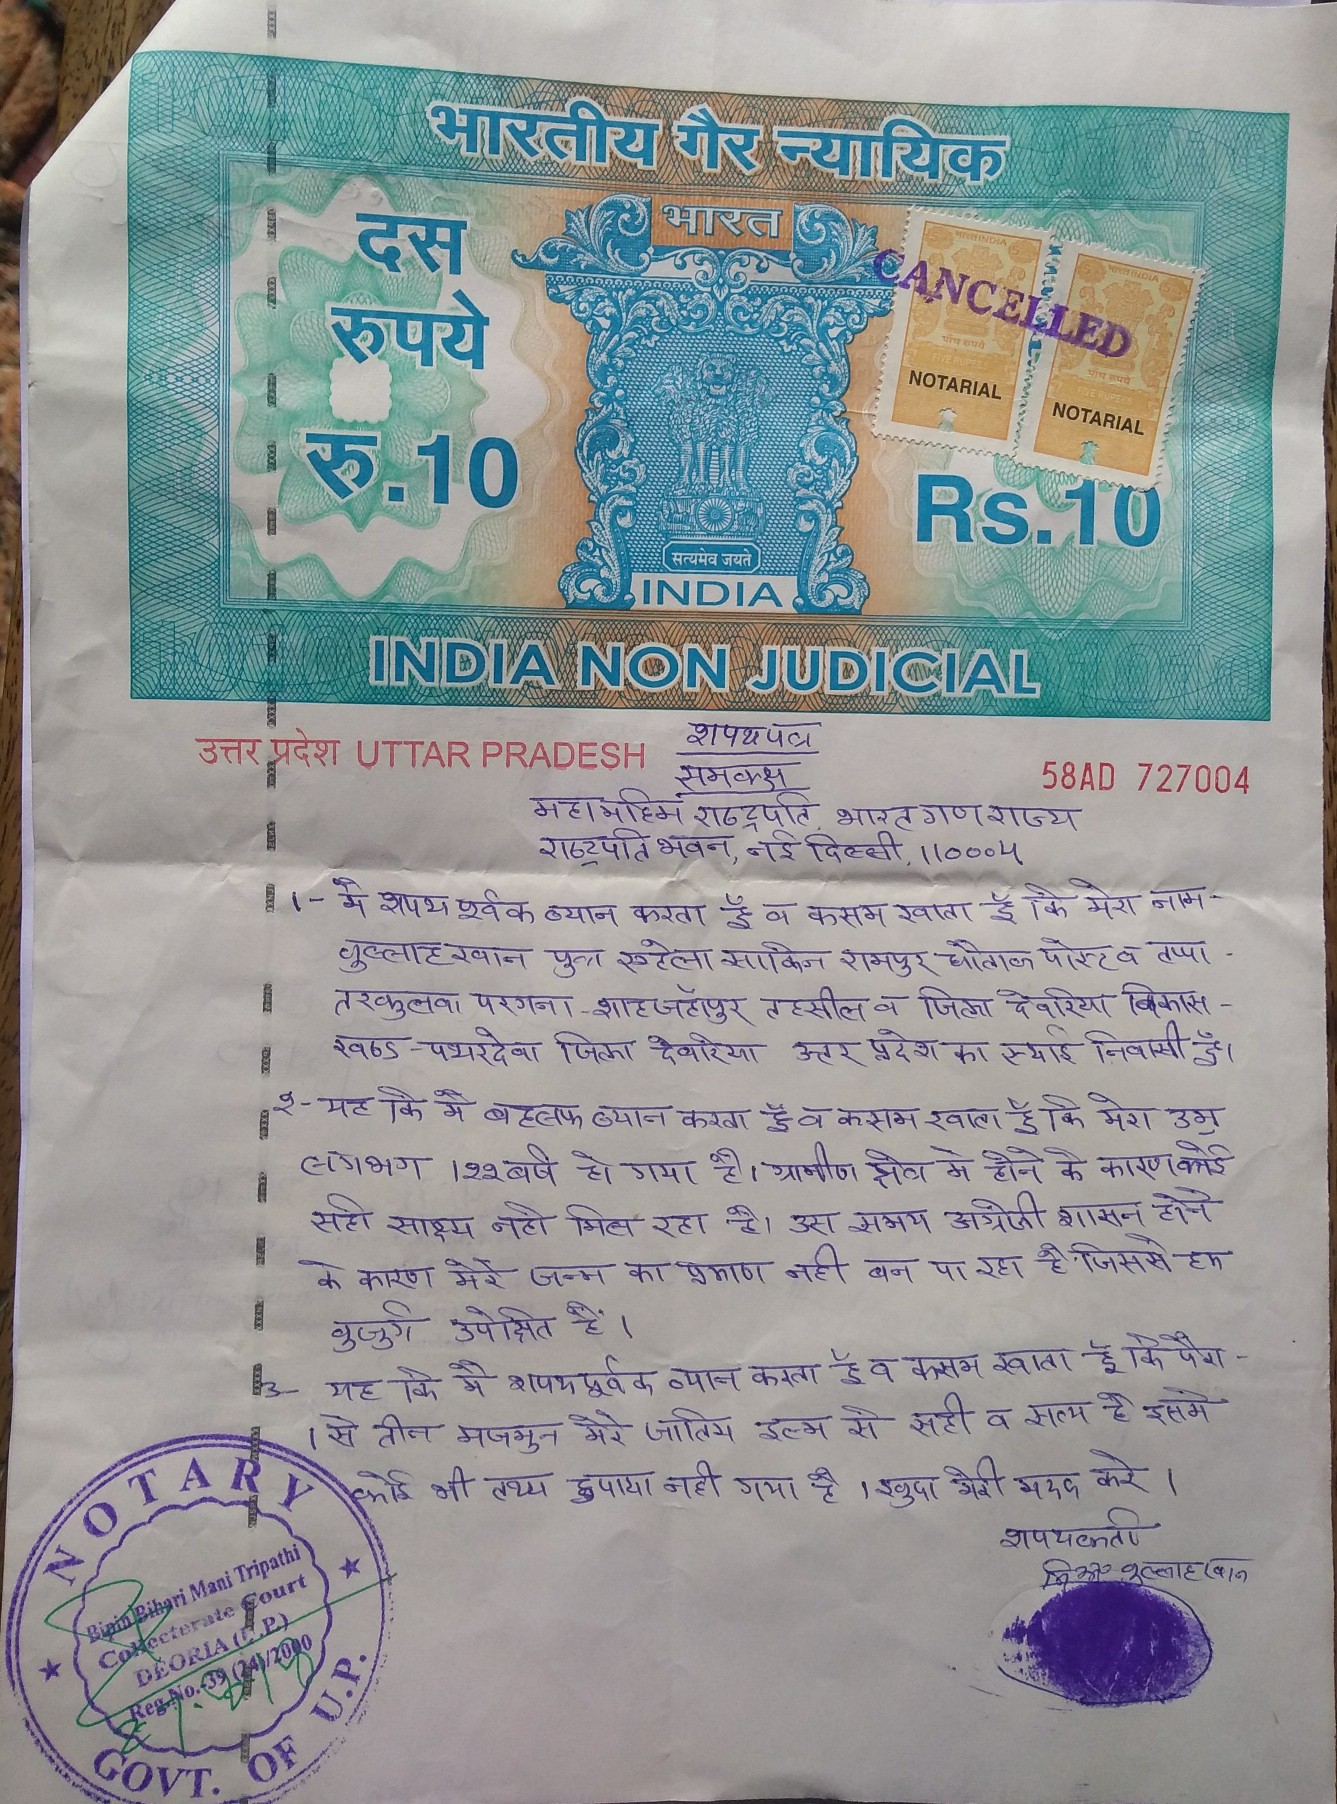 भारतीय गैर न्यायिक
भारत
दस
रुपये
रु.10
भारत INDIA
पांच रुपये
FIVE RUPEES
NOTARIAL
भारत INDIA
पांच रुपये
FIVE RUPEES
NOTARIAL
CANCELLED
Rs.10
सत्यमेव जयते
INDIA
INDIA NON JUDICIAL
उत्तर प्रदेश UTTAR PRADESH
58AD 727004
शपथपत्र
समक्ष
महामहिम राष्ट्रपति, भारत गणराज्य
राष्ट्रपति भवन, नई दिल्ली, 110004
1- मै शपथ पूर्वक ब्यान करता हूँ व कसम खाता हूँ कि मेरा नाम-
खान पुत्र साकिन रामपुर पोस्ट व तप्पा-
तरकुलवा परगना-शाहजहाँपुर तहसील व जिला देवरिया विकास-
खण्ड-पथरदेवा जिला देवरिया उत्तर प्रदेश का स्थाई निवासी हूँ।
2- यह कि मै बहलफ ब्यान करता हूँ व कसम खाता हूँ कि मेरा उम्र
लगभग 122 वर्ष हो गया है। ग्रामीण क्षेत्र मे होने के कारण कोई
सही साक्ष्य नही मिल रहा है। उस समय अंग्रेजी शासन होने
के कारण मेरे जन्म का प्रमाण नही बन पा रहा है जिससे हम
बुजुर्ग उपेक्षित है।
3- यह कि मै शपथपूर्वक ब्यान करता हूँ व कसम खाता हूँ कि पैरा-
1 से तीन मजमुन मेरे जातिय इल्म से सही व सत्य है इसमे
कोई भी तथ्य छुपाया नही गया है। खुदा मेरी मदद करे।
शपथकर्ता
खान
NOTARY
Bipin Bihari Mani Tripathi
Collecterate Court
DEORIA (U.P.)
Reg.No.-39 (24)/2000
GOVT. OF U.P.